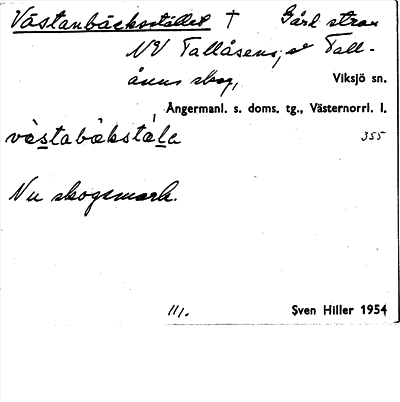 Västanbäcksstället † Gård strax
NV Tallåsens, å Tall-
åsens skog, Viksjö sn.
Ångermanl. s. doms. tg., Västernorrl. l.
västabäkstäla 355
Nu skogsmark.
111. Sven Hiller 1954